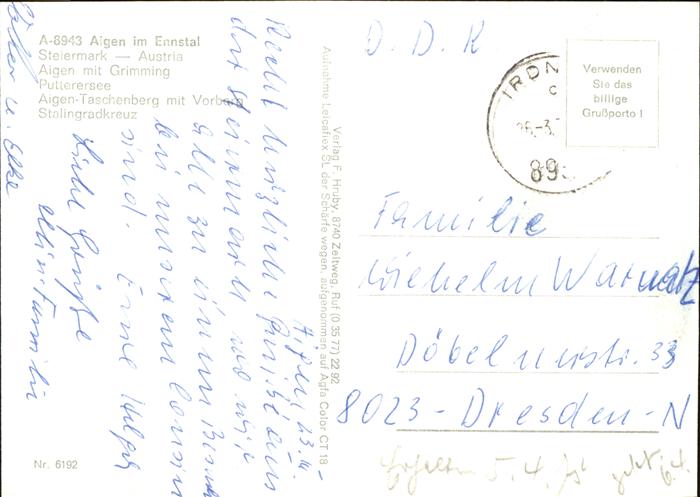 A-8943 Aigen im Ennstal
Steiermark — Austria
Aigen mit Grimming
Putterersee
Aigen-Taschenberg mit Vorberg
Stalingradkreuz
Nr. 6192
Verlag F. Hruby, 8740 Zeltweg, Ruf (0 35 77) 22 92
Aufnahme Leicaflex SL der Schärfe wegen, aufgenommen auf Agfa Color CT 18
Aigen, 23.
Recht herzliche Grüße aus
der Steiermark wo wir
alle zu einem
bei unserem
sind.
Liebe Grüße
Familie
u. Elke
D. D. R
IRDN
26.-3.
89
Verwenden
Sie das
billige
Grußporto !
Familie
Wilhelm Warnatz
Döbelnerstr. 33
8023 - Dresden - N
Erhalten 5. 4.
6.4.